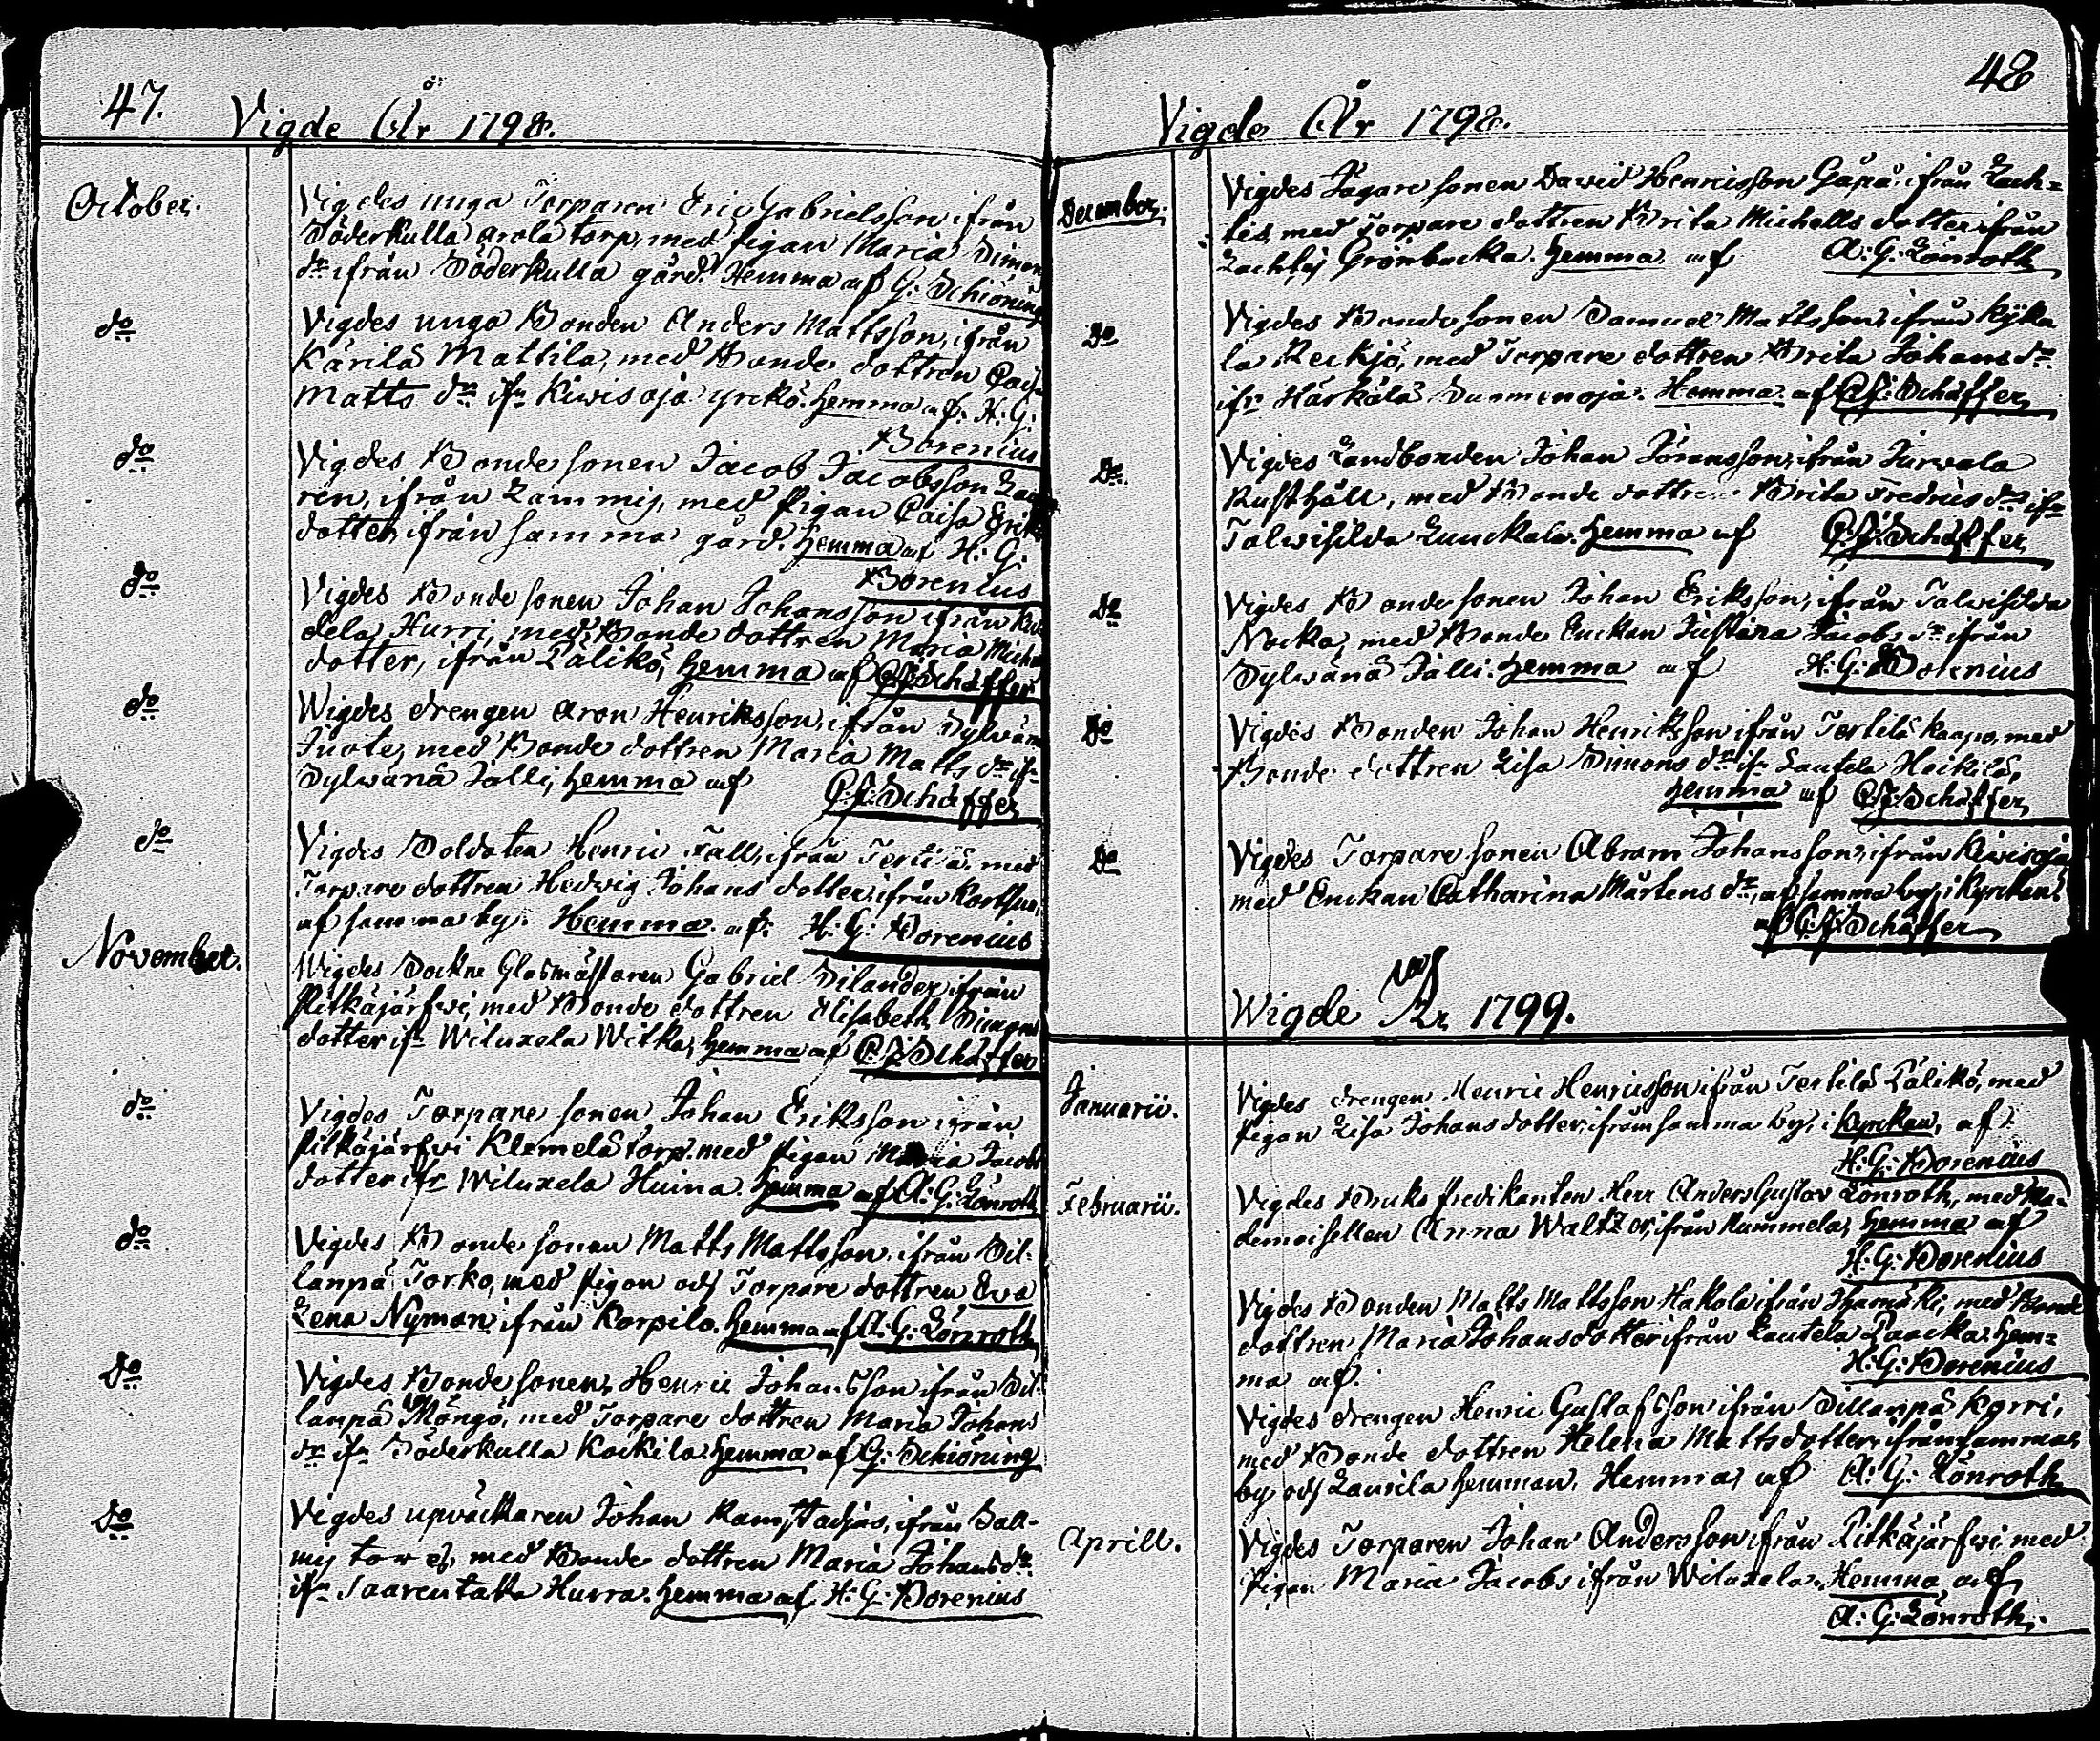 47.
Vigde År 1798.
October.
Vigdes unga Torparen Eric Gabrielsson ifrån
Söderkulla arola torp, med pigan Maria Simons
dr ifrån Söderkulla gård. Hemma af G: Schiöning
do
Vigdes unga Bonden Anders Mattsson, ifrån
Kärilä Mattila, med Bonde dottren Caisa
Matts dr ifn Kiwisoja yrckö. hemma af. H: G:
Borenius
do
Vigdes Bonde sonen Jacob Jacobsson
ren, ifrån Lammij, med pigan Caisa Eriks
dotter ifrån samma gård. hemma af H: G:
Borenius
do
Vigdes Bonde sonen Johan Johansson ifrån
dela Hurri, med Bonde dottren Maria Michels
dotter, ifrån Pälikö, hemma af C: J: Schäffer
do
Wigdes drengen Aron Henriksson, ifrån Sylwänä
Juote, med Bonde dottren Maria Matts dr ifn
Sylwänä Jalli, hemma af C: J: Schäffer
do
Vigdes Soldaten Henric Fall, ifrån Terttilä, med
Torpare dottren Hedvig Johans dotter ifrån
af samma by. Hemma. af: H: G: Borenius
November.
Wigdes Sockne Glasmästaren Gabriel Silander ifrån
Pitkäjärfwi, med Bonde dottren Elisabeth Simons
dotter ifn Wiluxela Witka, hemma af C: J: Schäffer
do
Vigdes Torpare sonen Johan Eriksson ifrån
Pitkäjärfwi Klemelä torp. med pigan Maria Jacobs
dotter ifr Wiluxela Huina. hemma af A: G: Lönroth
do
Vigdes Bonde sonen Matts Mattsson. ifrån Sil-
lanpä Torko, med pigan och Torpare dottren Eva
Lena Nyman ifrån Korpila. hemma af A: G: Lönroth
Do
Vigdes Bonde sonen, Henric Johansson ifrån Sil-
lanpä Möngö, med Torpare dottren Maria Johans
dr ifn Söderkulla Kockila hemma af G: Schiöning
Do
Vigdes upväcktaren Johan Ramstadjus, ifrån Sall-
mij torp, med Bonde dottren Maria Johansdr
ifn Saarentaka Hurra. hemma af H: G: Borenius
48
Vigde År 1798.
December.
Vigdes Jägare sonen David Henricsson Gäpä. ifrån Lach-
tis, med Torpare dottren Brita Michells dotter ifrån
Lachtij Grönbacka. hemma af A: G: Lönroth
Do
Vigdes Bonde sonen Samuel Mattsson, ifrån Kijka
la Reckjö, med Torpare dottren Brita Johans dr
ifn Härkälä Summenoja. Hemma. af C: J: Schäffer
Do.
Vigdes Landbonden Johan Jöransson, ifrån Jurvala
Rusthåll, med Bonde dottren Brita Fredrics dr ifn
Talwisilda Luuckala. hemma af C: J: Schäffer
Do
Vigdes Bonde sonen Johan Eriksson, ifrån Talwisilda
Nocka, med Bonde Enckan Justina Jacobs dr ifrån
Sylwänä Jälli. hemma af H: G: Borenius
Do
Vigdes Bonden Johan Henriksson ifrån Tertilä Kaapo, med
Bonde dottren Lisa Simons dr ifn Lautela Heikilä,
hemma af C: J: Schäffer
Do
Vigdes Torpare sonen Abram Johansson, ifrån Kiwisoja
med Enckan Catharina Mårtens dr, af samma by, i Kyrckan.
af C: J: Schäffer
Wigde År 1799.
Januarii.
Vigdes drengen Henric Henricsson ifrån Tertilä Pälikö, med
pigan Lisa Johans dotter, ifrån samma by, i Kyrckan, af
H: G: Borenius
Februarii.
Vigdes Bruks Predikanten Herr Anders Gustav Lönroth, med Ma-
demoisellen Anna Waltzer, ifrån Kummela, hemma af
H: G: Borenius
Vigdes Bonden Matts Mattsson Hakola ifrån Ihamäki, med Bonde
dottren Maria Johansdotter ifrån Lautela Paacka. hem-
ma af. H: G: Borenius
Vigdes drengen Henric Gustafsson ifrån Sillanpä Korri,
med Bonde dottren Helena Mattsdotter, ifrån samma
by och Laurila hemman. Hemma, af A: G: Lönroth
Aprill.
Vigdes Torparen Johan Andersson ifrån Pitkäjärfwi med
pigan Maria Jacobs ifrån Wiluxela. Hemma af
A: G: Lönroth.